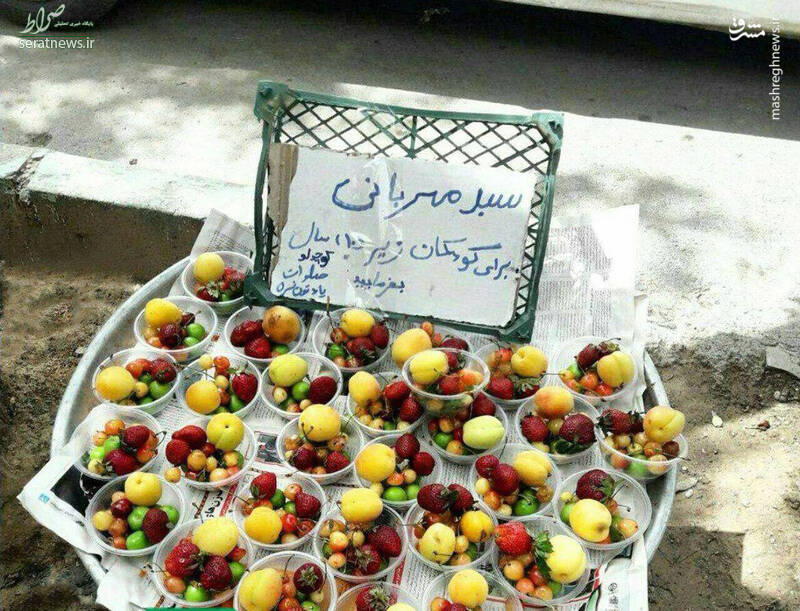 صراط
پایگاه خبری تحلیلی
seratnews.ir
مشرق
mashreghnews.ir
سبد مهربانی
برای کودکان زیر ۱۰ سال
کوچولو
بفرمایید
صلوات
یادتون نره